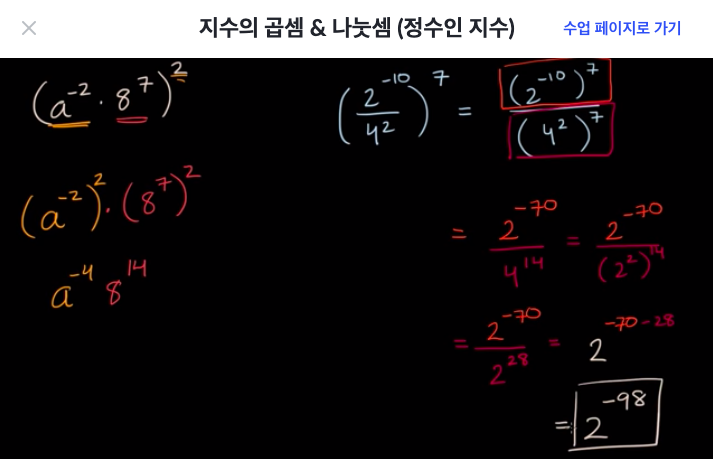 지수의 곱셈 & 나눗셈 (정수인 지수)
수업 페이지로 가기
(a⁻² · 8⁷)²
(a⁻²)² · (8⁷)²
a⁻⁴ 8¹⁴
(2⁻¹⁰ / 4²)⁷ = (2⁻¹⁰)⁷ / (4²)⁷
= 2⁻⁷⁰ / 4¹⁴ = 2⁻⁷⁰ / (2²)¹⁴
= 2⁻⁷⁰ / 2²⁸ = 2⁻⁷⁰⁻²⁸
= 2⁻⁹⁸